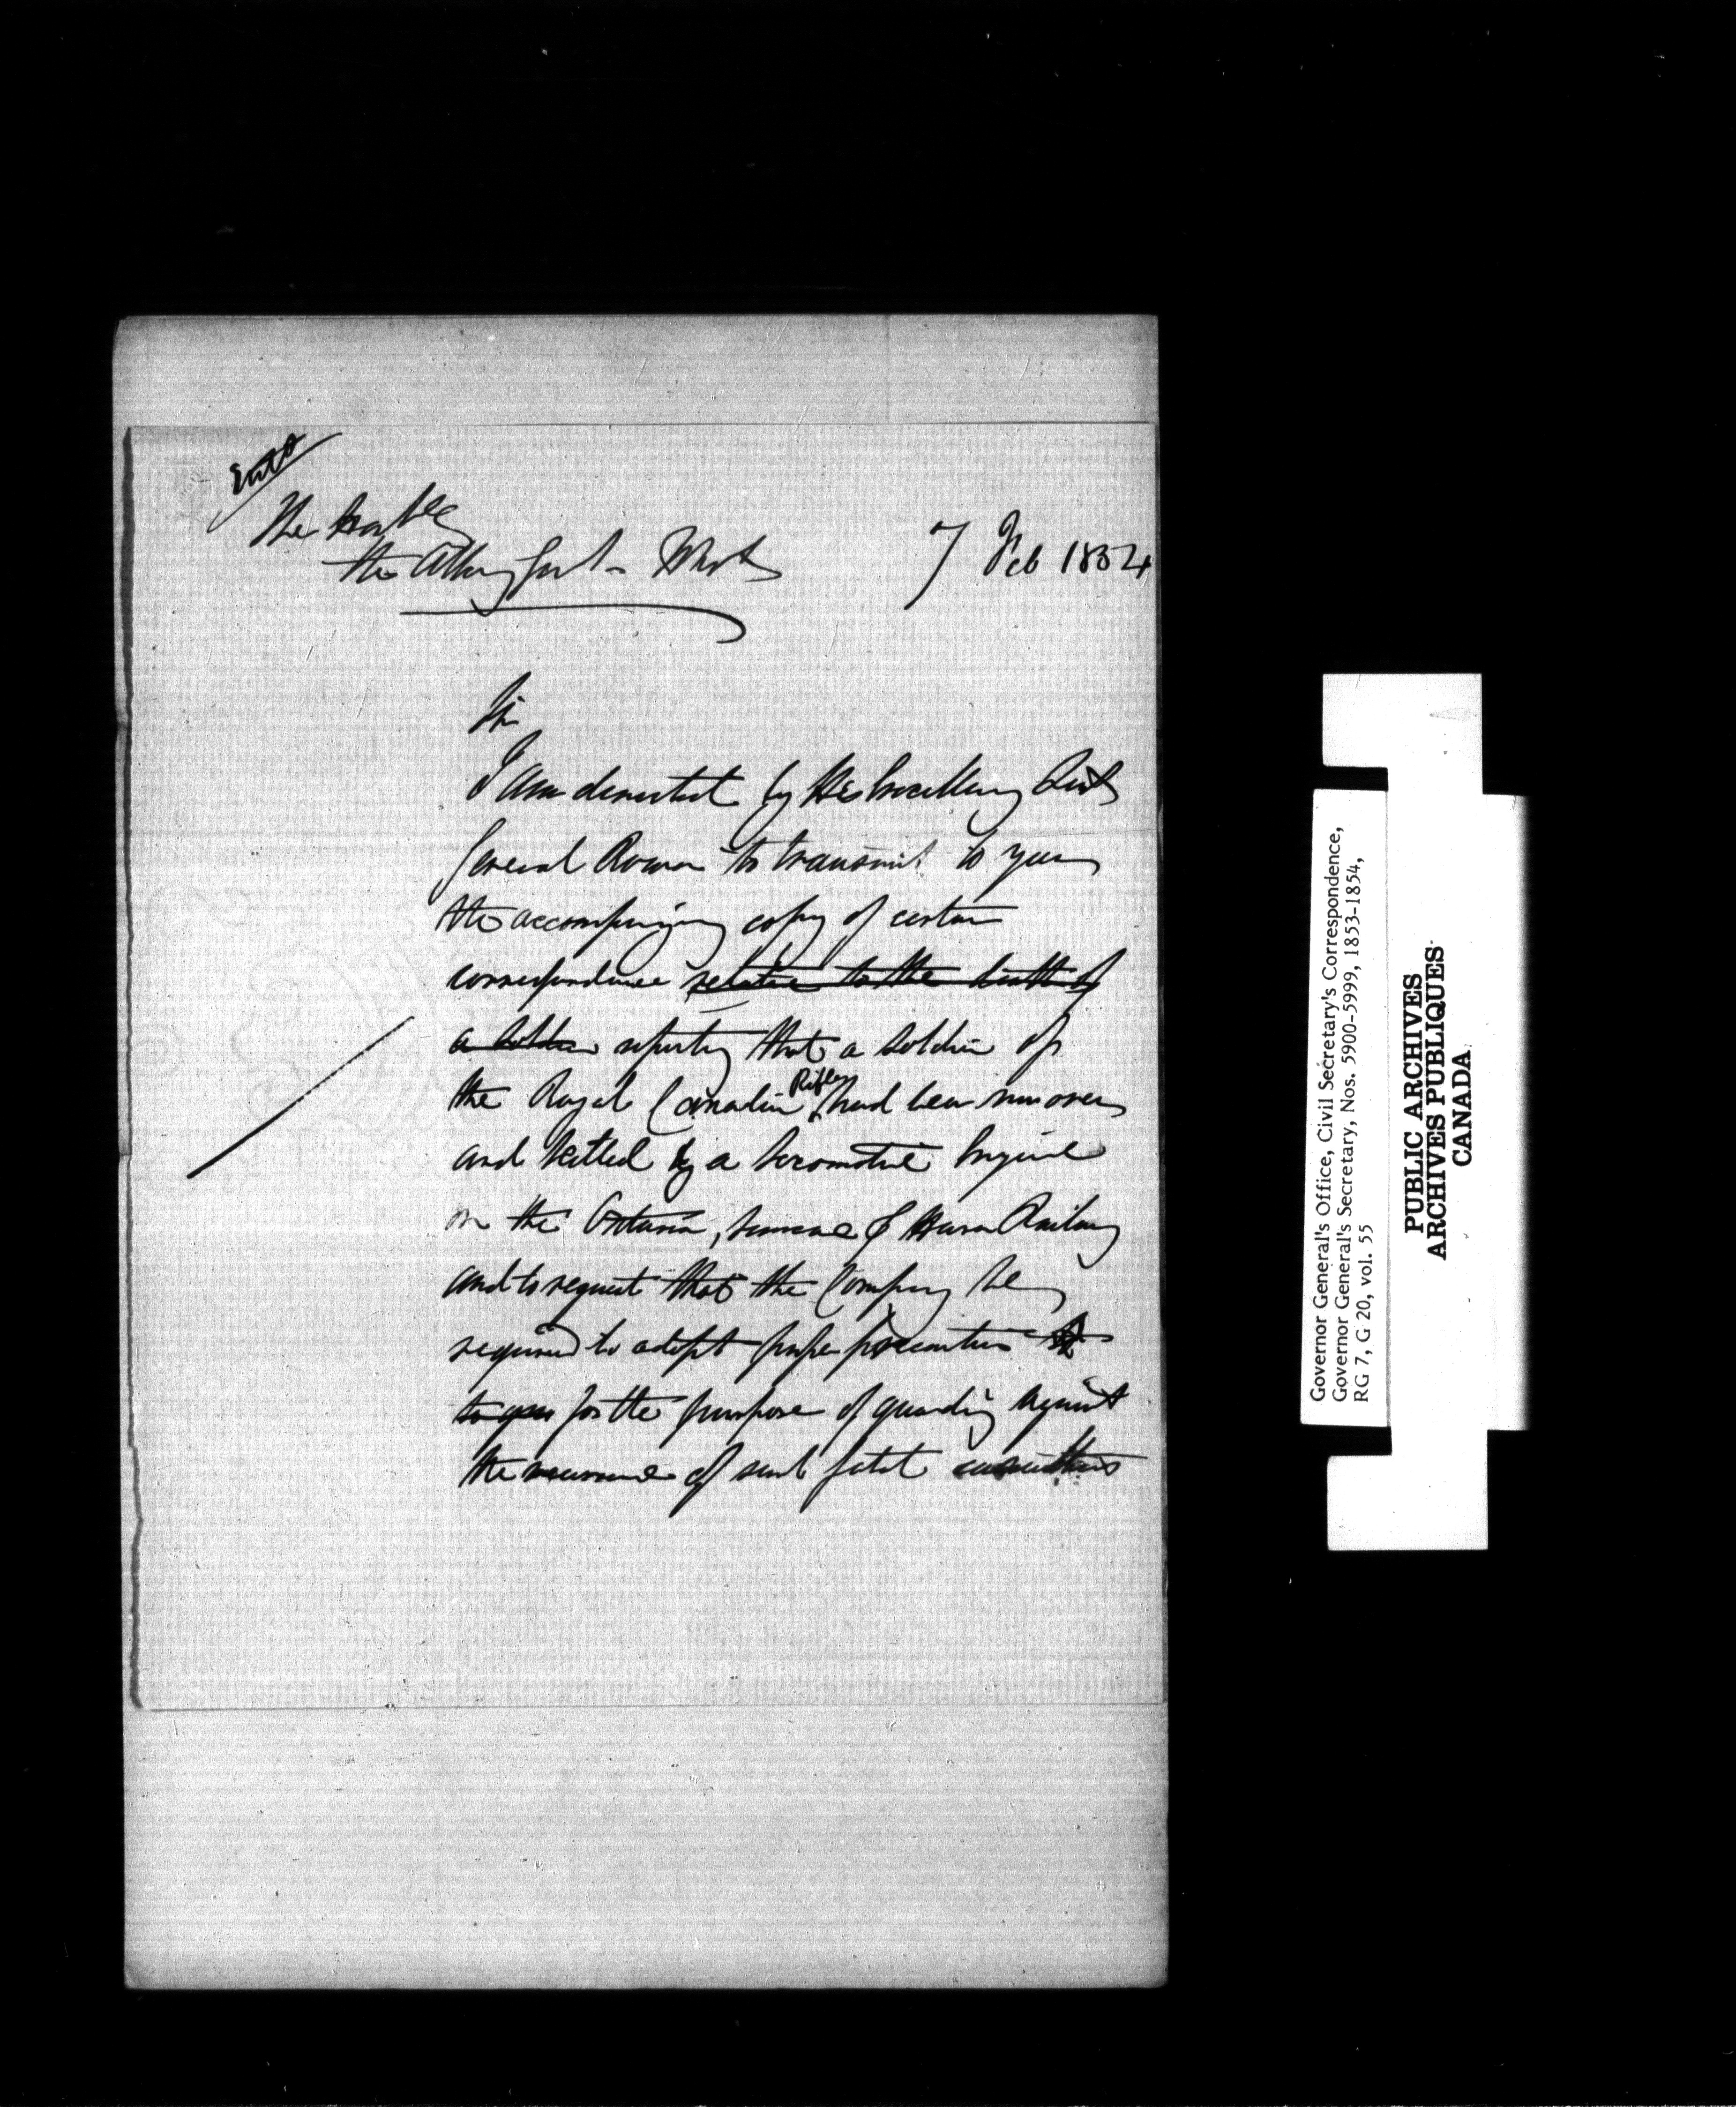 Entd
The Honble
the Atty Genl - West
7 Feb 1854
Sir
I am directed by His Excellency Lieut
General Rowan to transmit to you
the accompanying copy of certain
correspondence relative to the death of
a soldier reporting that a soldier of
the Royal Canadian Rifles had been run over
and killed by a locomotive Engine
on the Ontario, Simcoe & Huron Railway
and to request that the Company be
required to adopt proper precautions
to for the purpose of guarding against
the recurrence of such fatal
Governor General's Office, Civil Secretary's Correspondence,
Governor General's Secretary, Nos. 5900-5999, 1853-1854,
RG 7, G 20, vol. 55
PUBLIC ARCHIVES
ARCHIVES PUBLIQUES
CANADA